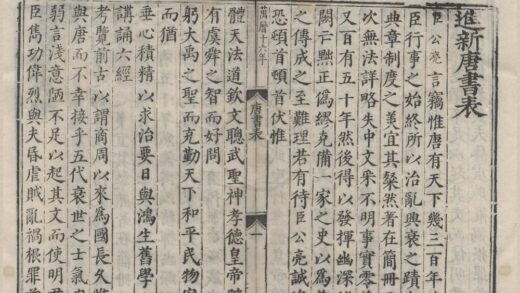 進新唐書表
臣公亮言竊惟唐有天下幾三百年
臣行事之始終所以治亂興衰之蹟
典章制度之美宜其粲然著在簡冊
次無法詳略失中文采不明事實零
又百有五十年然後得以發揮幽深
闕亡黜正偽繆克備一家之史以為
之傳成之至難理若有待臣公亮誠
恐頓首頓首伏惟
萬曆十六年
唐書表
一
體天法道欽文聰武聖神孝德皇帝陛
有虞舜之智而好問
躬大禹之聖而克勤天下和平民物安
而猶
垂心積精以求治要日與鴻生舊學
講誦六經
考覽前古以謂商周以來為國長久
與唐而不幸接乎五代衰世之士氣
弱言淺意陋不足以起其文而使明
臣雋功偉烈與夫昏虐賊亂禍根罪